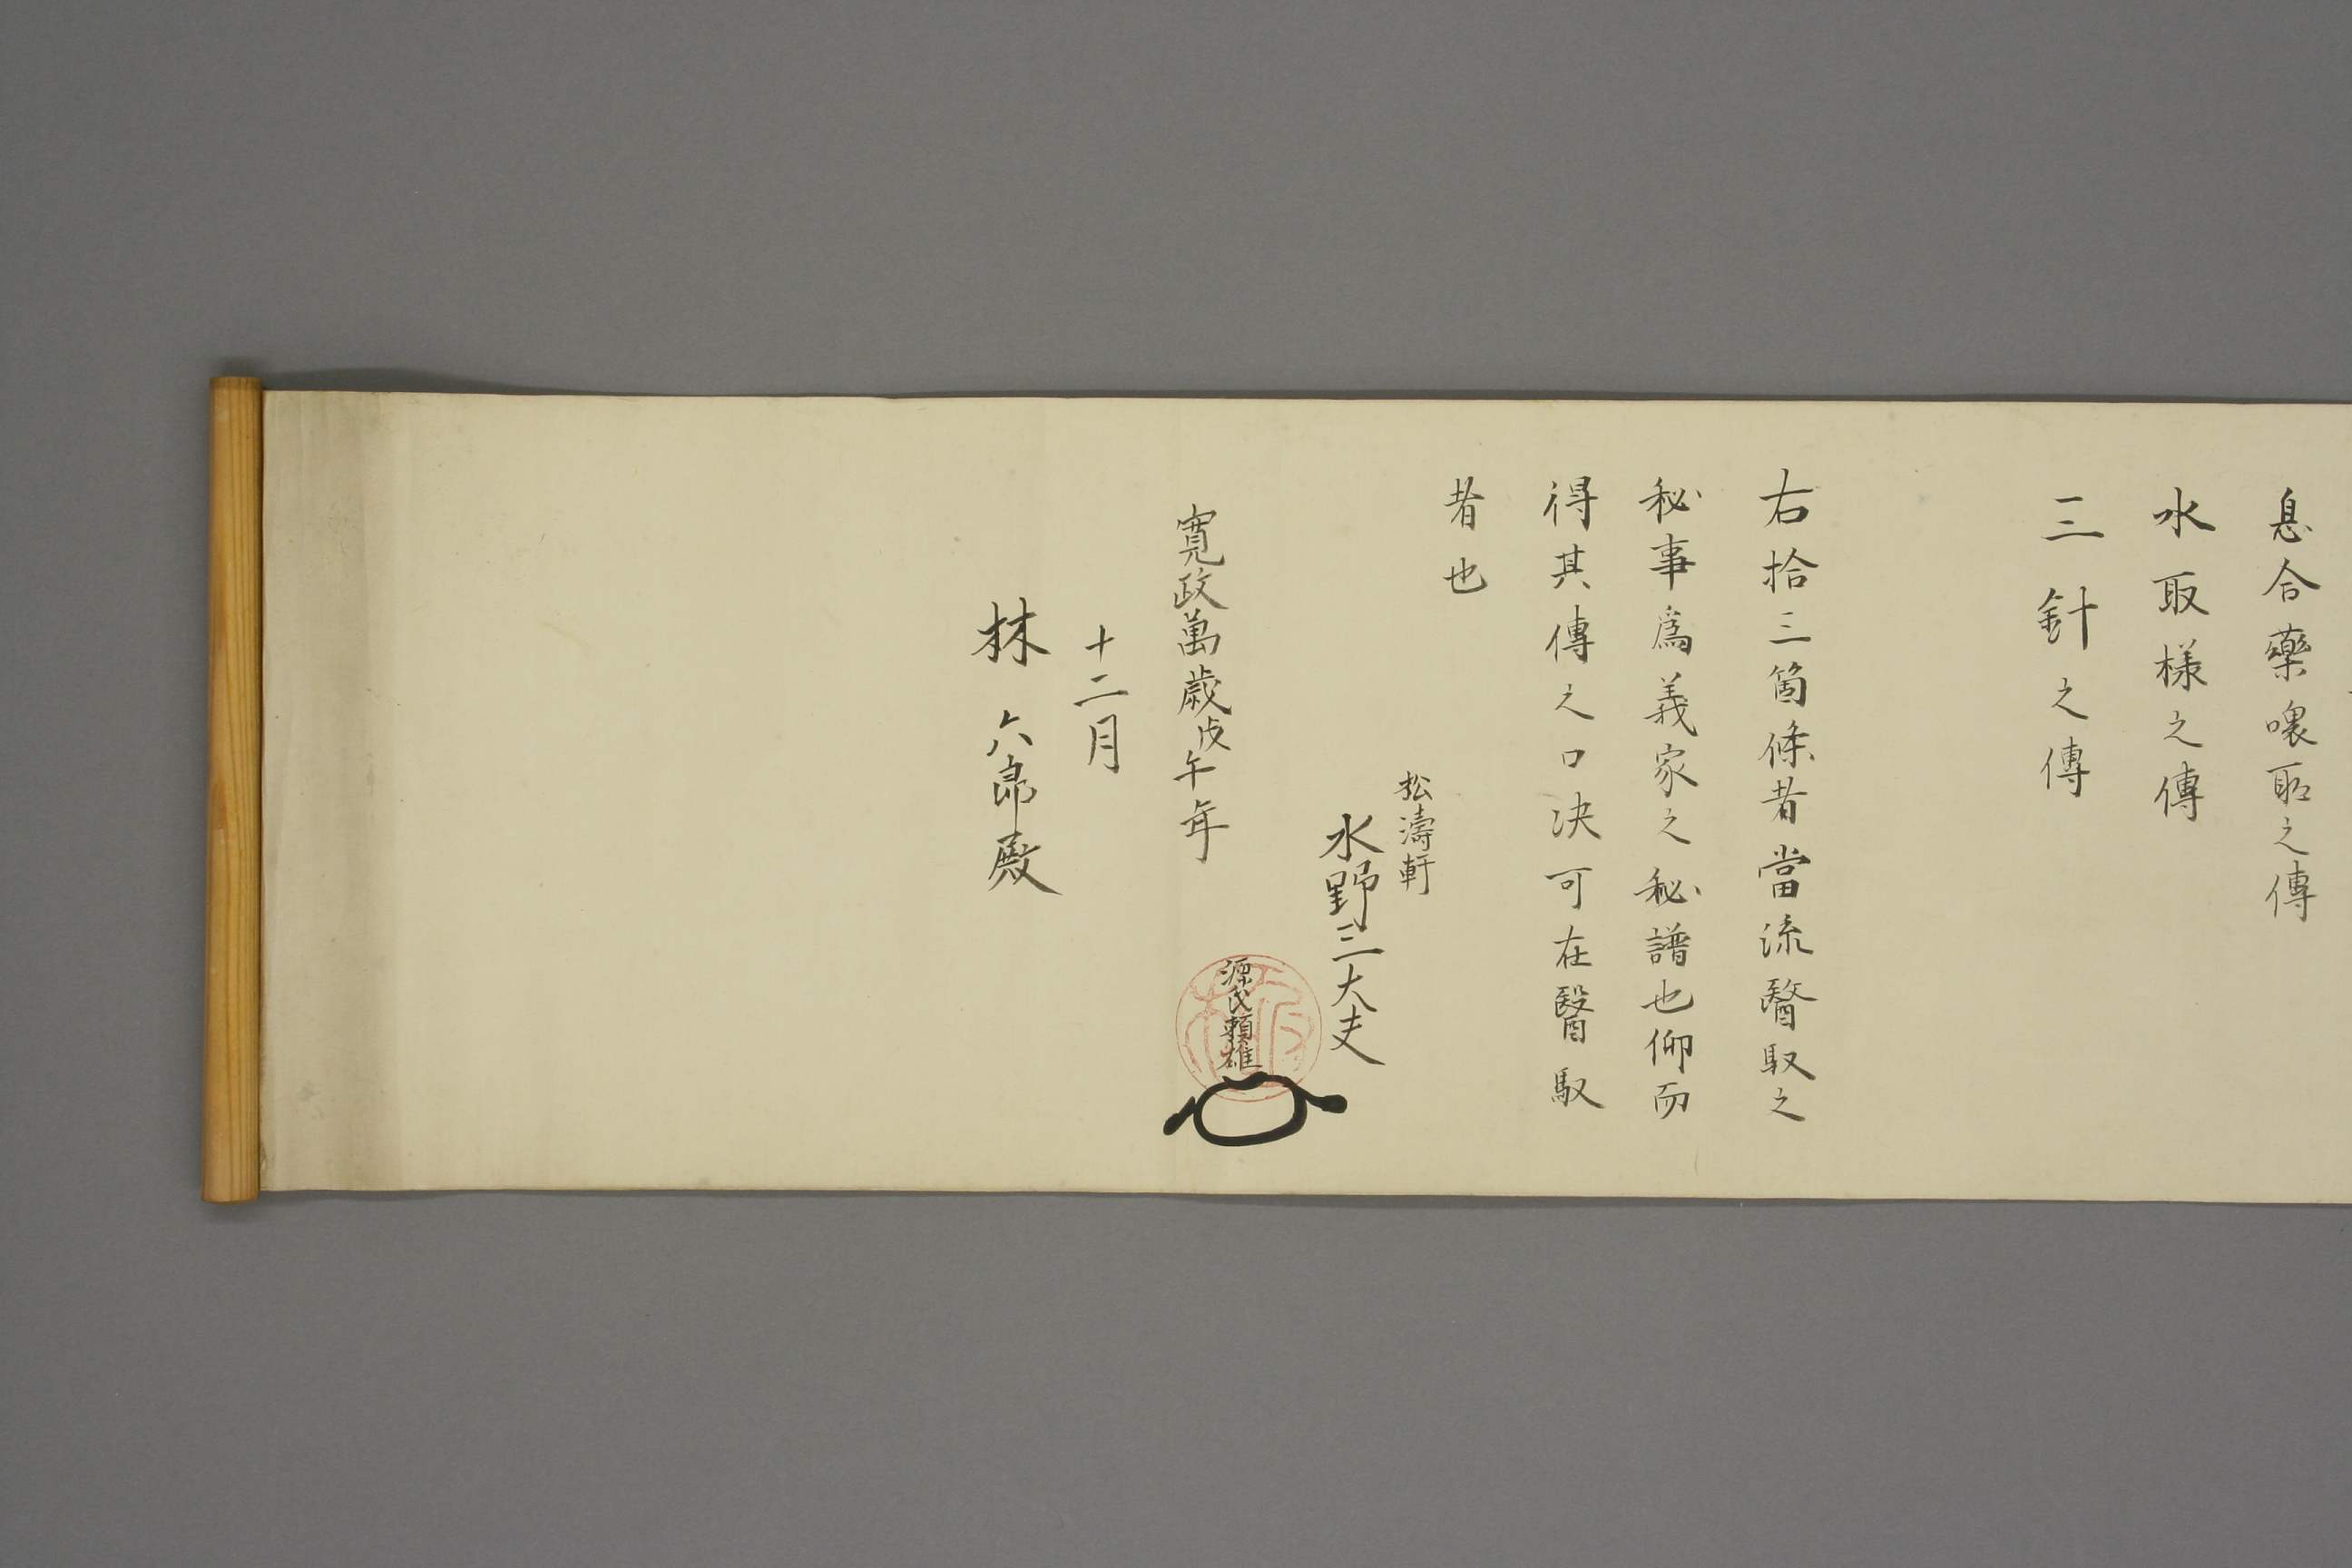 息合藥喰取之傳
水取様之傳
三針之傳
右拾三箇條者當流醫馭之
秘事爲義家之秘譜也仰而
得其傳之口决可在醫馭
者也
松濤軒
水野三大夫
源氏頼雄
寛政萬歳戊午年
十二月
林六郎殿